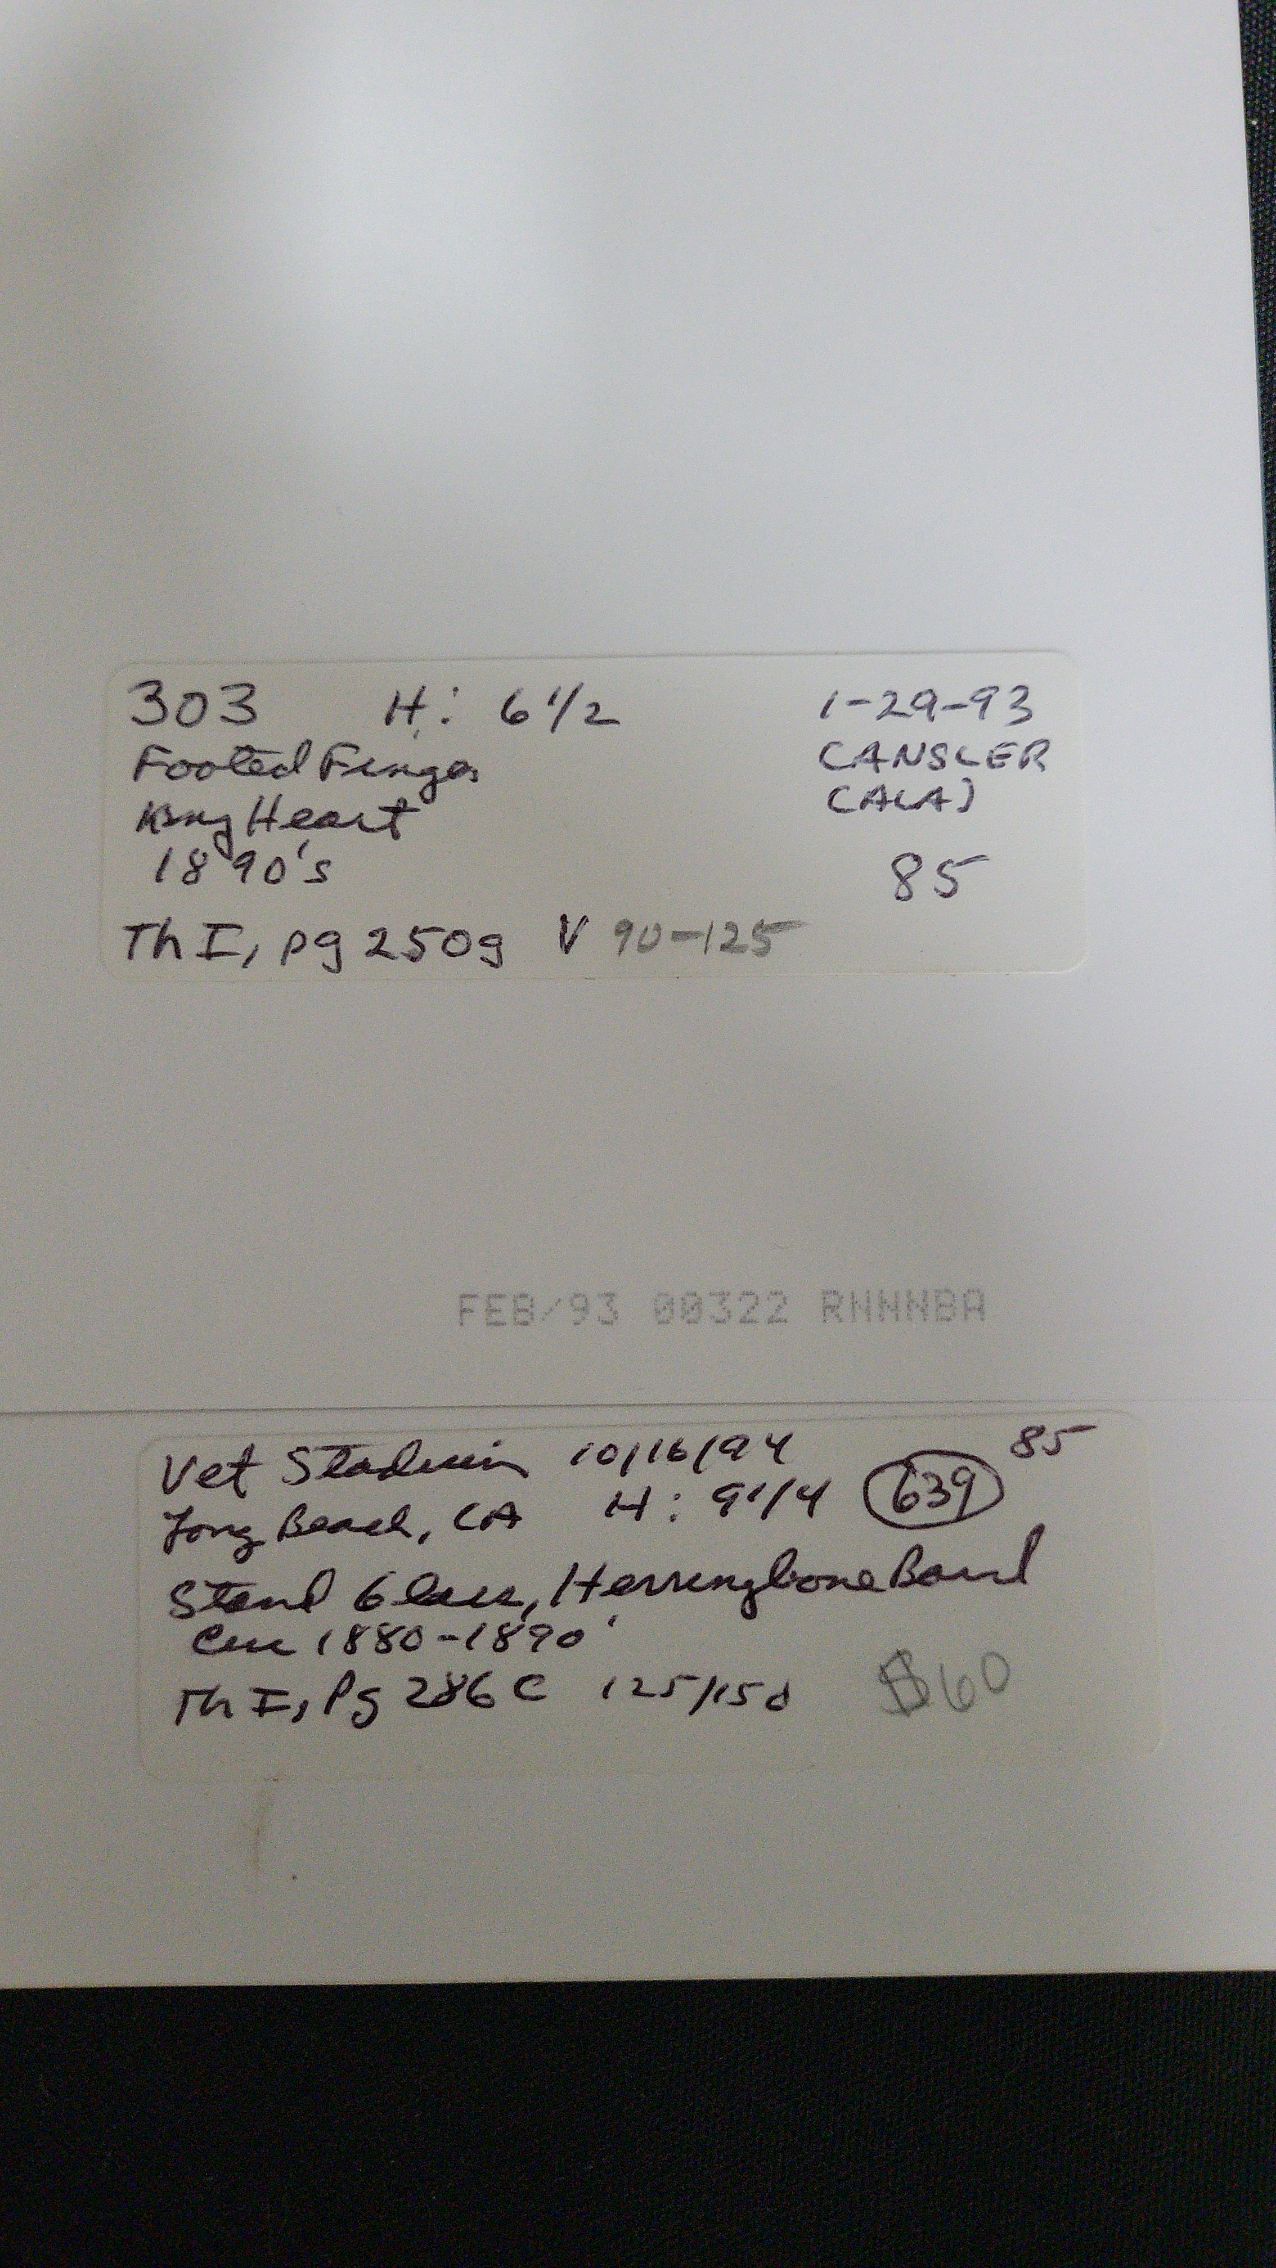 303 H: 6 1/2 1-29-93
Footed Finger CANSLER
King Heart (ALA)
1890's 85
Th I, pg 250g V 90-125
FEB/93 00322 RNNNBA
Vet Stadium 10/16/94 85
Long Beach, CA H: 9 1/4 639
Stand Glass, Herringbone Band
1880-1890
Th I, Pg 286 C 125/150 $60